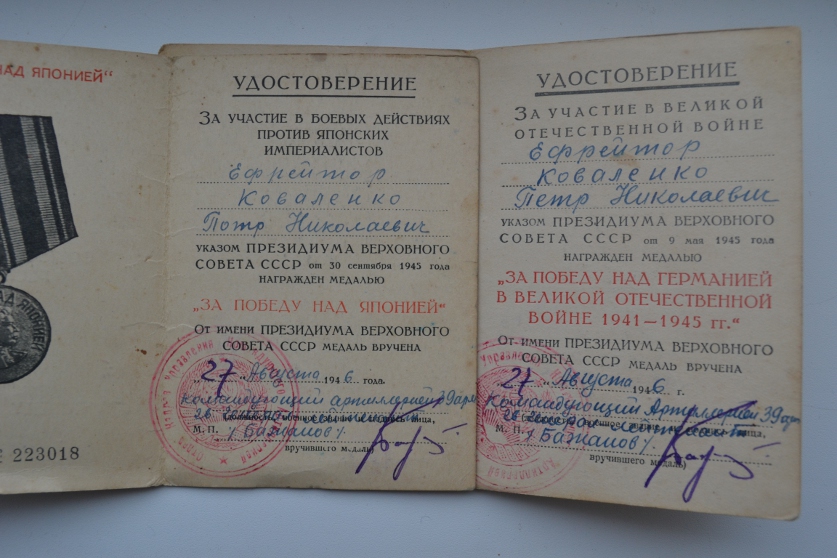 НАД ЯПОНИЕЙ"
НАД ЯПОНИЕЙ
223018
УДОСТОВЕРЕНИЕ
ЗА УЧАСТИЕ В БОЕВЫХ ДЕЙСТВИЯХ
ПРОТИВ ЯПОНСКИХ
ИМПЕРИАЛИСТОВ
Ефрейтор
Коваленко
Потр Николаевич
указом ПРЕЗИДИУМА ВЕРХОВНОГО
СОВЕТА СССР от 30 сентября 1945 года
НАГРАЖДЕН МЕДАЛЬЮ
„ЗА ПОБЕДУ НАД ЯПОНИЕЙ"
От имени ПРЕЗИДИУМА ВЕРХОВНОГО
СОВЕТА СССР МЕДАЛЬ ВРУЧЕНА
„27" Августа 1946 года.
командующий артиллерией 39 арм
М. П. /Бажанов/
вручившего медаль)
УДОСТОВЕРЕНИЕ
ЗА УЧАСТИЕ В ВЕЛИКОЙ
ОТЕЧЕСТВЕННОЙ ВОЙНЕ
Ефрейтор
Коваленко
Петр Николаевич
указом ПРЕЗИДИУМА ВЕРХОВНОГО
СОВЕТА СССР от 9 мая 1945 года
НАГРАЖДЕН МЕДАЛЬЮ
„ЗА ПОБЕДУ НАД ГЕРМАНИЕЙ
В ВЕЛИКОЙ ОТЕЧЕСТВЕННОЙ
ВОЙНЕ 1941—1945 гг."
От имени ПРЕЗИДИУМА ВЕРХОВНОГО
СОВЕТА СССР МЕДАЛЬ ВРУЧЕНА
„27" Августа 1946 г.
командующий Артиллерией 39 арм
М. П. /Бажанов/
вручившего медаль)